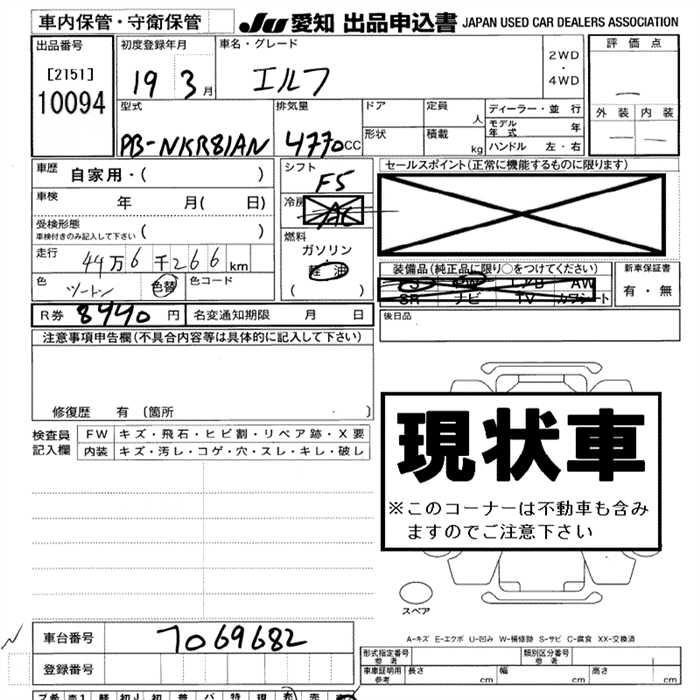 車内保管・守衛保管
JU 愛知 出品申込書 JAPAN USED CAR DEALERS ASSOCIATION
出品番号
[2151]
10094
初度登録年月
19 3月
車名・グレード
エルフ
2WD
・
4WD
評価点
—
外装 内装
— —
型式
PB-NKR81AN
排気量
4770cc
ドア
形状
定員 人
積載 kg
ディーラー・並行
モデル年式 年
ハンドル 左・右
車歴
自家用・( )
車検 年 月( 日)
受検形態
車検付きのみ記入して下さい ( )
走行
44万6千266km
色 ツートン 色替 色コード
シフト
F5
冷房
AC
燃料
ガソリン
軽油
( )
セールスポイント(正常に機能するものに限ります)
装備品(純正品に限り○をつけてください)
SR ナビ TV カワシート
AW
新車保証書
有・無
後日品
R券 8940円
名変通知期限 月 日
注意事項申告欄(不具合内容等は具体的に記入して下さい)
修復歴 有 (箇所 )
検査員記入欄
FW キズ・飛石・ヒビ割・リペア跡・X要
内装 キズ・汚レ・コゲ・穴・スレ・キレ・破レ
現状車
※このコーナーは不動車も含み
ますのでご注意下さい
スペア
A-キズ E-エクボ U-凹み W-補修跡 S-サビ C-腐食 XX-交換済
車台番号
7069682
登録番号
形式指定番号 参考
類別区分番号 参考
車庫証明用 参考
長さ cm 幅 cm 高さ cm